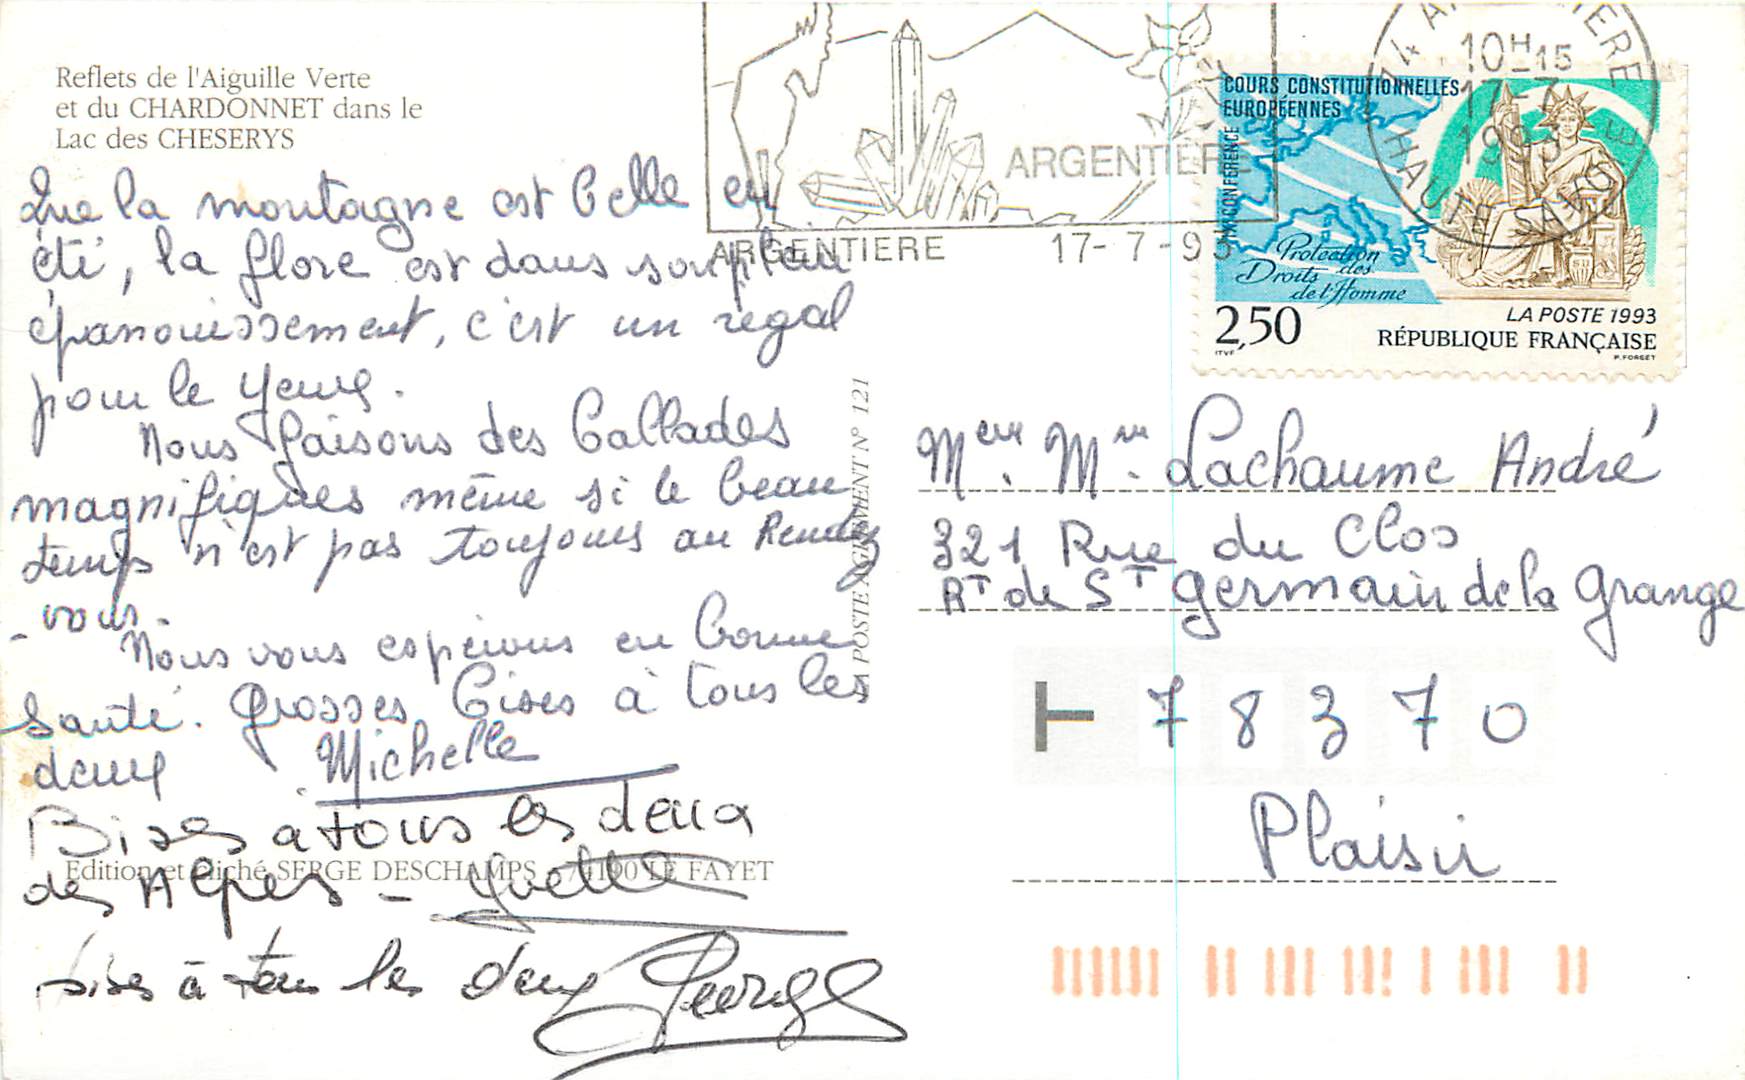 Reflets de l'Aiguille Verte
et du CHARDONNET dans le
Lac des CHESERYS
Que la montagne est belle en
été, la flore est dans son plein
épanouissement, c'est un régal
pour le yeux.
Nous faisons des ballades
magnifiques même si le beau
temps n'est pas toujours au Rendez
-vous.
Nous vous espérons en bonne
santé. Grosses bises à tous les
deux
Michelle
Bises a tous les deux
Edition et cliché SERGE DESCHAMPS - 74190 LE FAYET
des Alpes - Yvette
bises à tous les deux George
LA POSTE AGREMENT N° 121
ARGENTIERE
ARGENTIERE 17-7-93
74 ARGENTIERE
10H-15
17-7
1993
HAUTE SAVOIE
COURS CONSTITUTIONNELLES
EUROPÉENNES
IXe CONFERENCE
Protection
des
Droits
de l'Homme
2,50
ITVF
LA POSTE 1993
RÉPUBLIQUE FRANÇAISE
P. FORGET
Mr. Mme. Lachaume André
321 Rue du Clos
Rt de St Germain de la Grange
78370
Plaisir